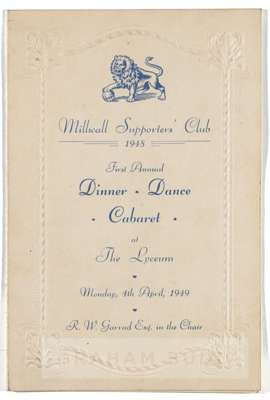 Millwall Supporters' Club
1948
First Annual
Dinner • Dance
• Cabaret •
at
The Lyceum
Monday, 4th April, 1949
R. W. Garrod Esq. in the Chair
GRAHAM BUDD